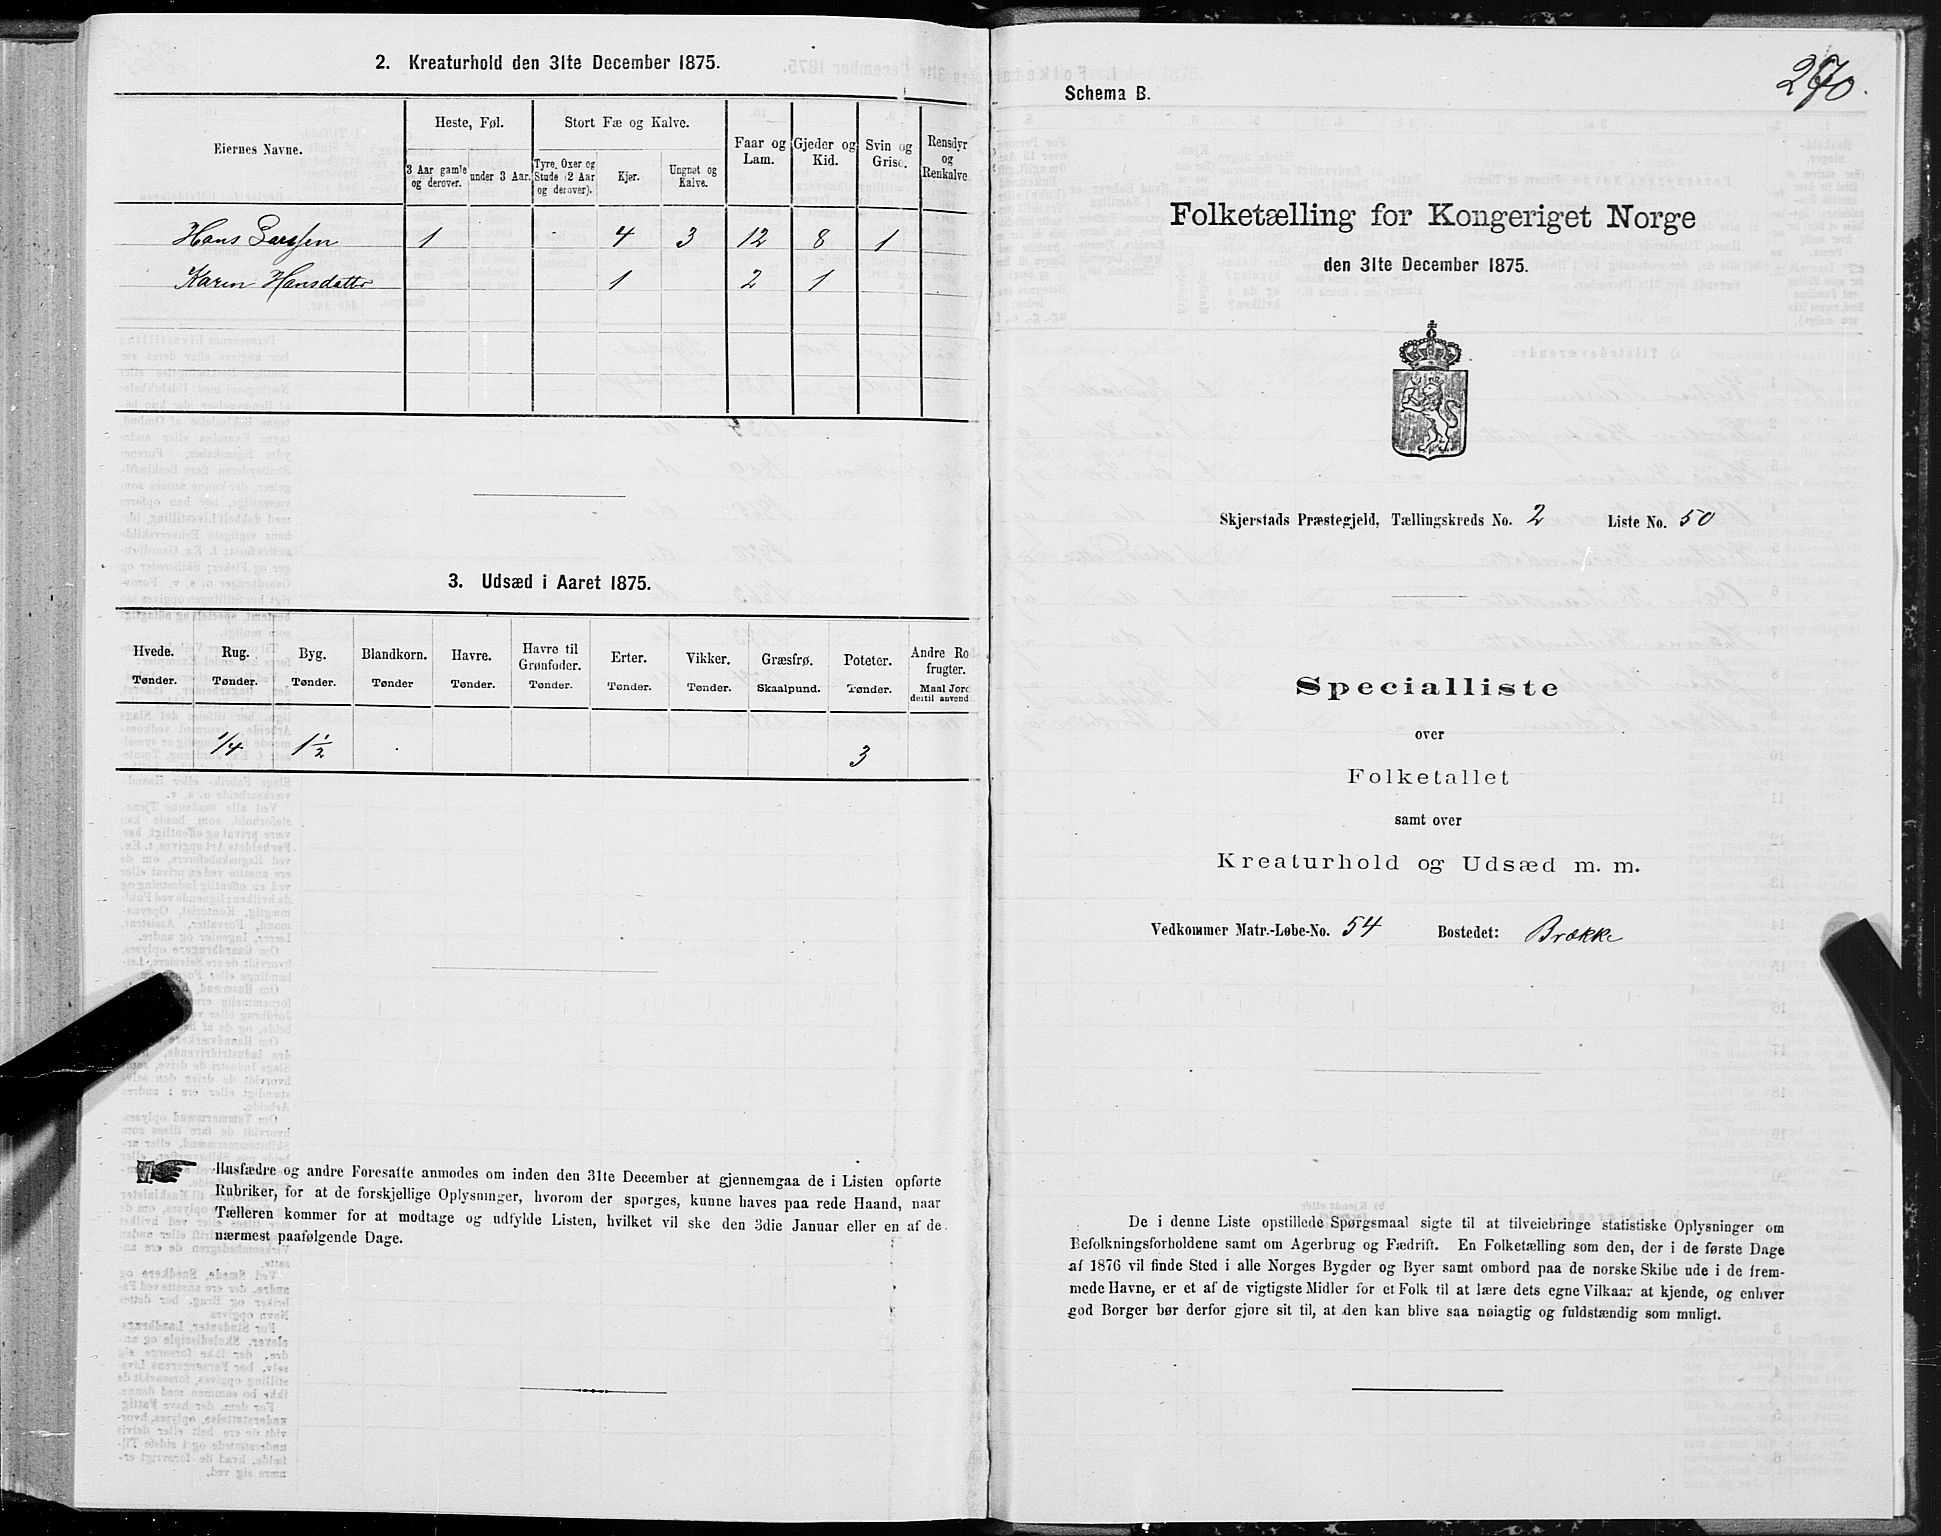 2. Kreaturhold den 31te December 1875.
Eiernes Navne.
Heste, Føl.
Stort Fæ og Kalve.
Faar og Lam.
Gjeder og Kid.
Svin og Grise.
Rensdyr og Renkalve
3 Aar gamle og derover.
under 3 Aar.
Tyre, Oxer og Stude (2 Aar og derover).
Kjør.
Ungnøt og Kalve.
Hans Larssen 1 4 3 12 8 1
Karen Hansdatter 1 2 1
3. Udsæd i Aaret 1875.
Hvede. Rug. Byg. Blandkorn. Havre. Havre til Grønfoder. Erter. Vikker. Græsfrø. Poteter. Andre Ro frugter.
Tønder. Tønder. Tønder. Tønder Tønder. Tønder. Tønder. Tønder. Skaalpund. Tønder. Maal Jord dertil anvend
1/4 1 1/2 3
Husfædre og andre Foresatte anmodes om inden den 31te December at gjennemgaa de i Listen opførte
Rubriker, for at de forskjellige Oplysninger, hvorom der spørges, kunne haves paa rede Haand, naar
Tælleren kommer for at modtage og udfylde Listen, hvilket vil ske den 3die Januar eller en af de
nærmest paafølgende Dage.
270.
Schema B.
Folketælling for Kongeriget Norge
den 31te December 1875.
Skjerstads Præstegjeld, Tællingskreds No. 2 Liste No. 50
Specialliste
over
Folketallet
samt over
Kreaturhold og Udsæd m. m.
Vedkommer Matr.-Løbe-No. 54 Bostedet: Brække
De i denne Liste opstillede Spørgsmaal sigte til at tilveiebringe statistiske Oplysninger om
Befolkningsforholdene samt om Agerbrug og Fædrift. En Folketælling som den, der i de første Dage
af 1876 vil finde Sted i alle Norges Bygder og Byer samt ombord paa de norske Skibe ude i de frem-
mede Havne, er et af de vigtigste Midler for et Folk til at lære dets egne Vilkaar at kjende, og enhver
god Borger bør derfor gjøre sit til, at den kan blive saa nøiagtig og fuldstændig som muligt.